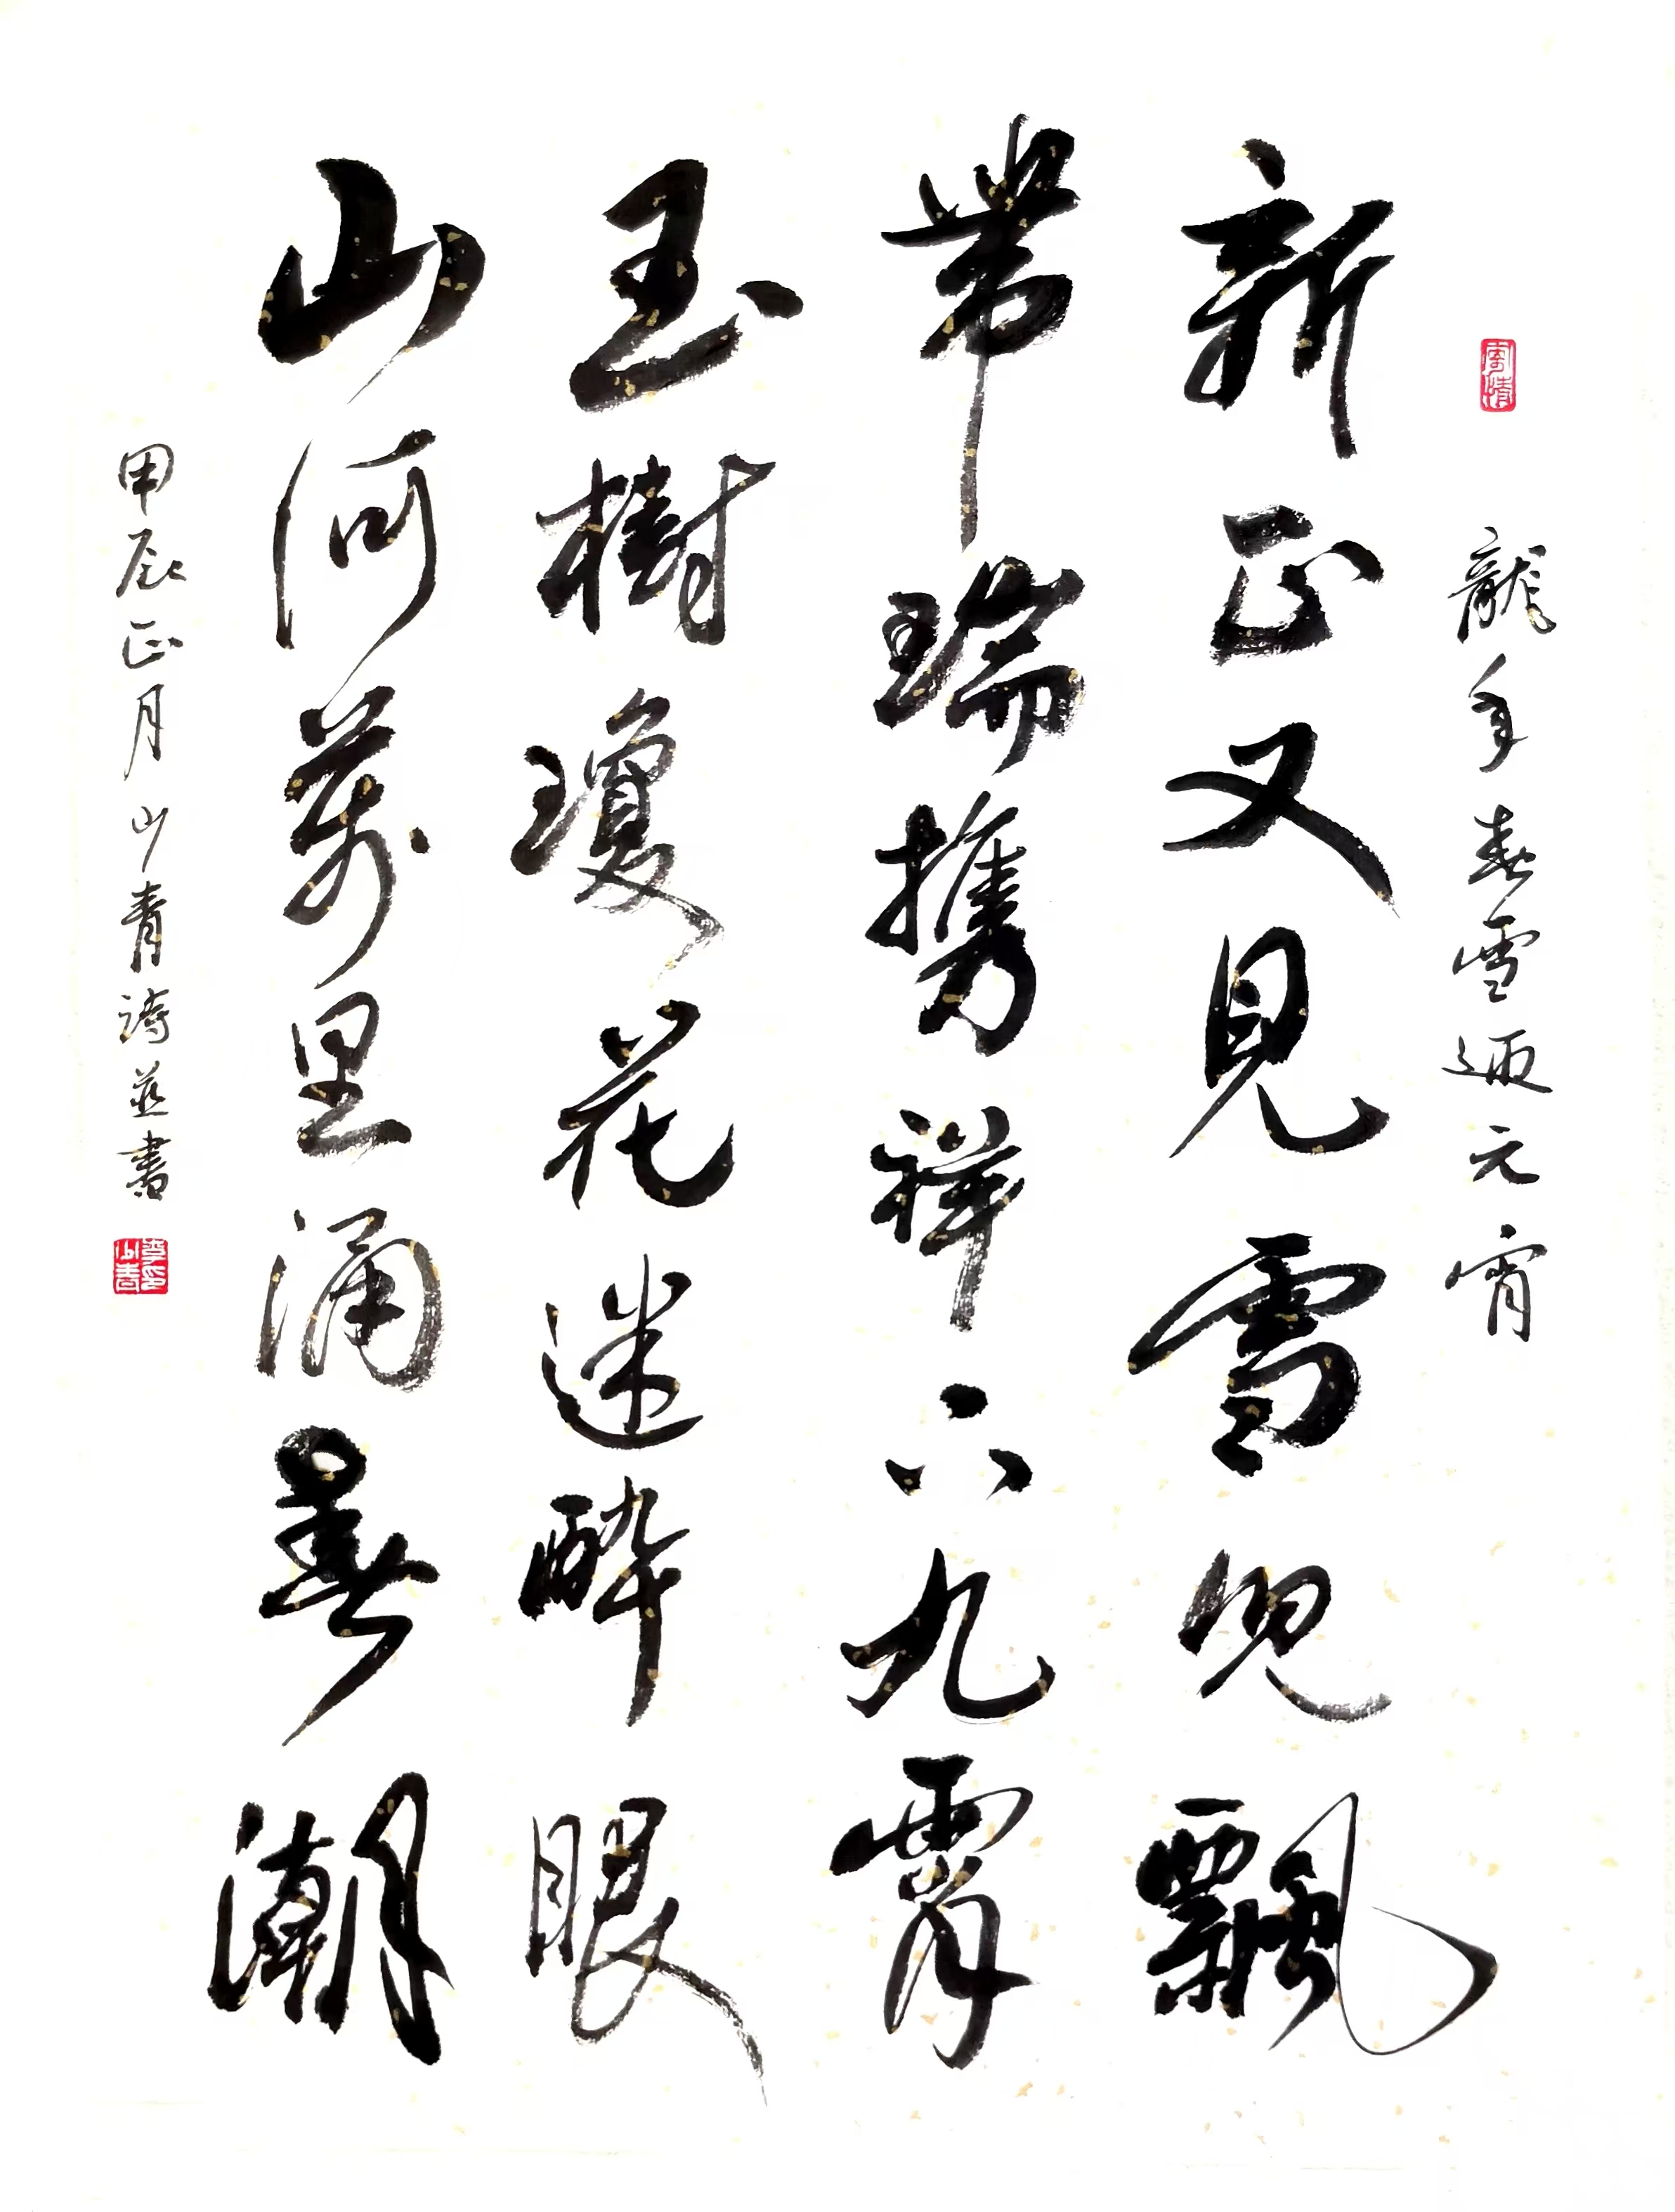 龍年春雪元宵
新正又見雪兒飄
帶瑞携祥下九霄
玉樹瓊花迷醉眼
山河萬里涌春潮
甲辰正月山青詩並書
李印山青